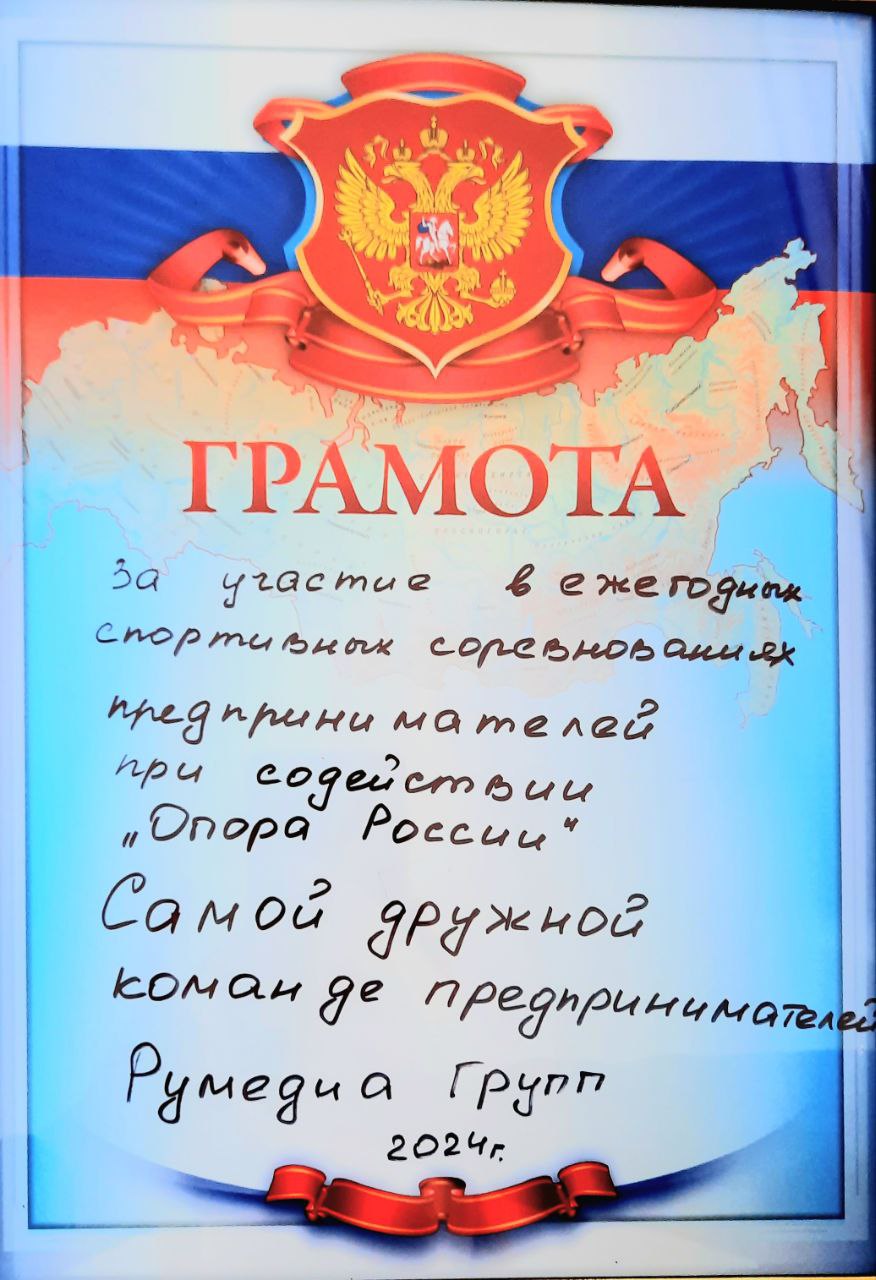 ГРАМОТА
За участие в ежегодных
спортивных соревнованиях
предпринимателей
при содействии
„Опора России“
Самой дружной
команде предпринимателей
Румедиа Групп
2024г.